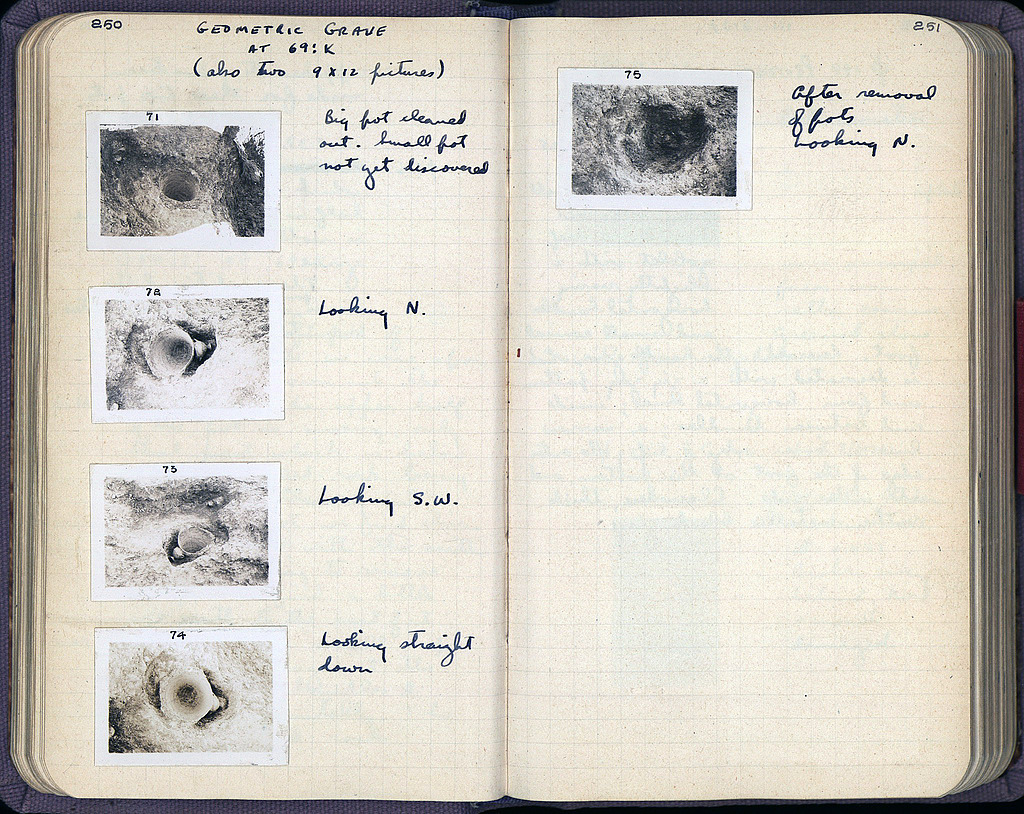 250
GEOMETRIC GRAVE
AT 69:K
(also two 9 x 12 pictures)
71
Big pot cleaned
out. Small pot
not yet discovered
72
Looking N.
73
Looking S.W.
74
Looking straight
down
251
75
After removal
of pots
Looking N.